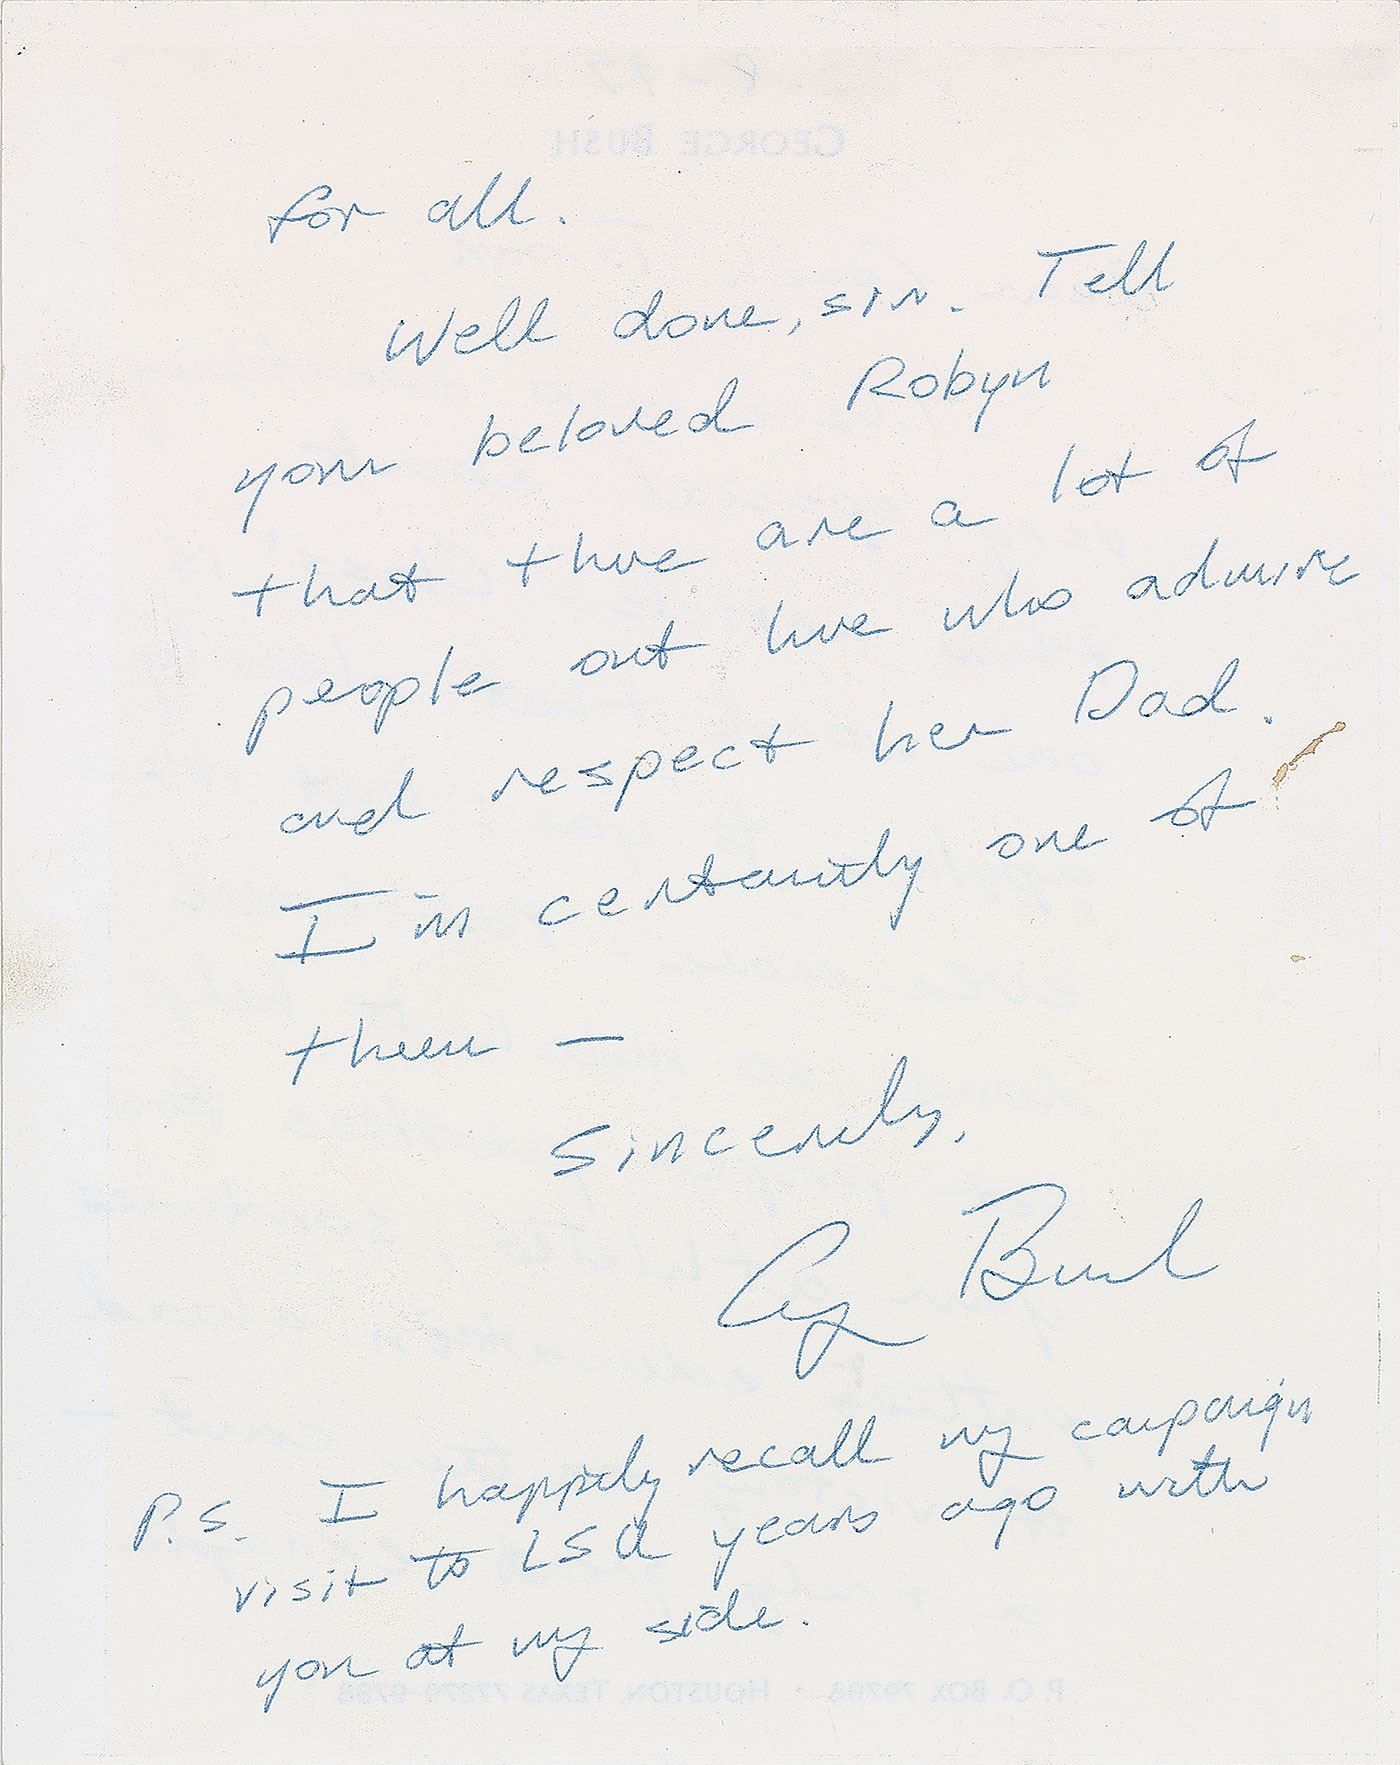 for all.
Well done, sir. Tell
your beloved Robyn
that there are a lot of
people out here who admire
and respect her Dad.
I'm certainly one of
them —
Sincerely,
G Bush
P.S. I happily recall my campaign
visit to LSU years ago with
you at my side.
GEORGE BUSH
P. O. BOX 79798 • HOUSTON, TEXAS 77279-9798